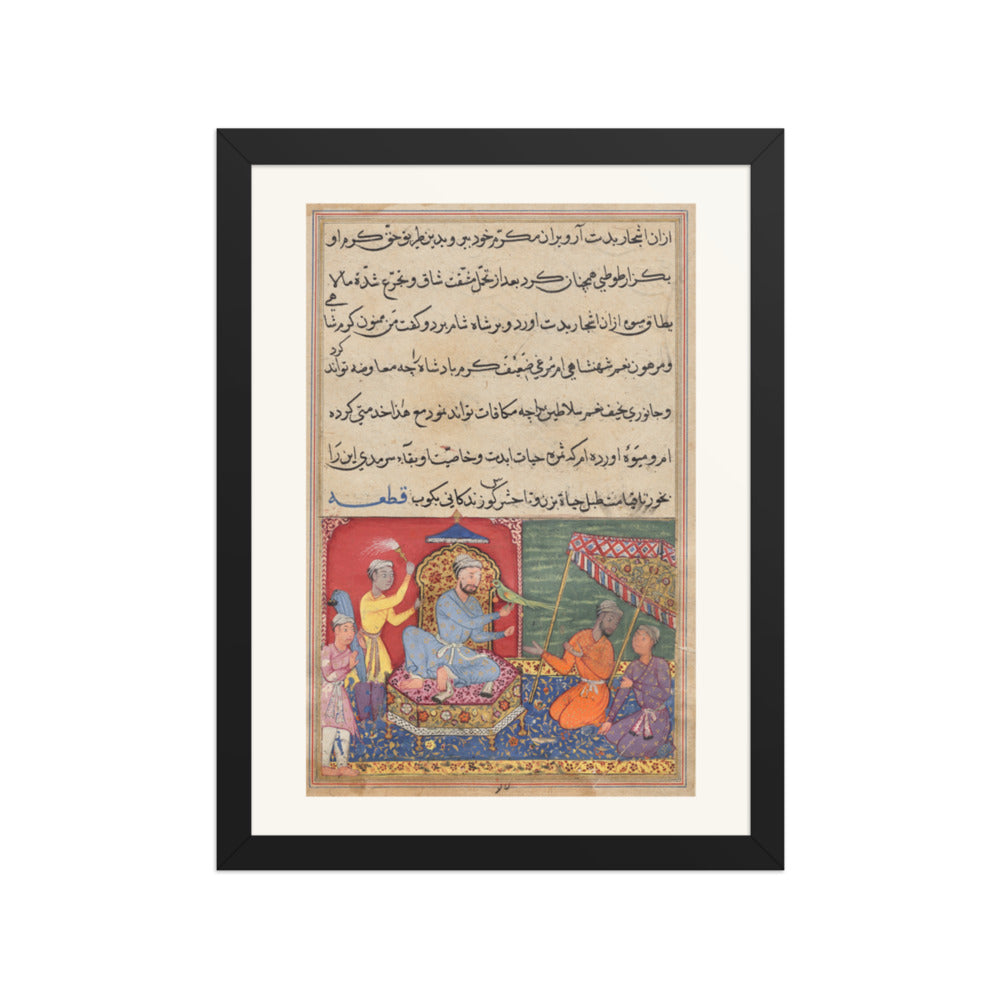 ازان اشجار بدست آر و بران مکرّم خود ببر و بدین طریق حق کرم او
بگزار طوطی همچنان کرد بعد از تحمّل مشقّت شاق و تجرّع شدّة مالا
یطاق میوه ازان اشجار بدست اورد و بر شاه شام برد و کفت من ممنون کرم شاهی
و مرهون نعم شهنشاهی ام مرغی ضعیف کرم بادشاه را چه معاوضه تواند کرد
و جانوری نحیف نعم سلاطین را چه مکافات تواند نمود مع هذا خدمتی کرده
ام و میوهٔ اورده ام که ثمرهٔ حیات ابدست و خاصیت او بقاء سرمدی این را
بخور تا قیامت طبل حیاة بزن و تا حشر کوس زندکانی بکوب قطعه